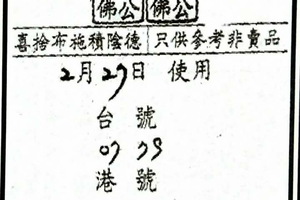 佛公 佛公
喜捨布施積陰德 只供參考非賣品
2月27日 使用
台號
07 39
港號